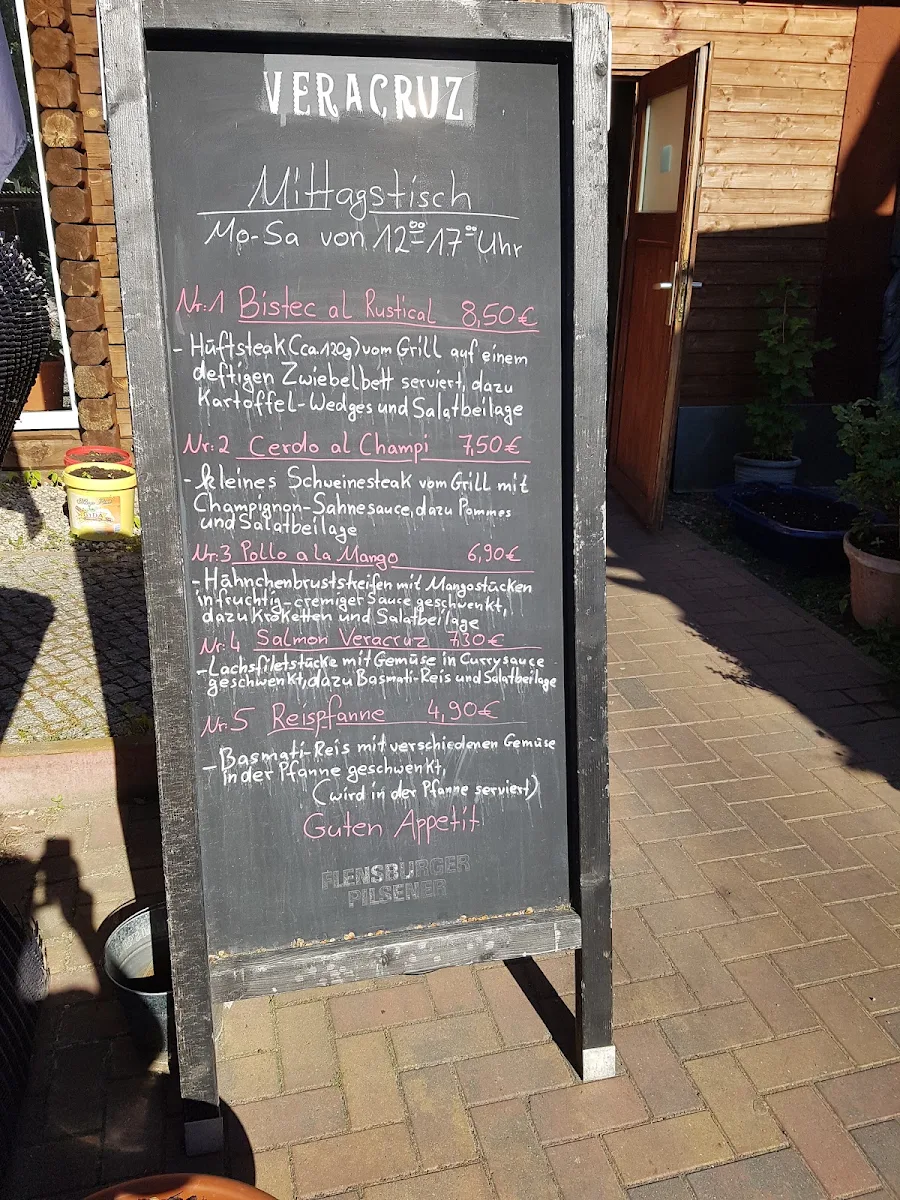 VERACRUZ
Mittagstisch
Mo-Sa von 12⁰⁰-17⁰⁰ Uhr
Nr.1 Bistec al Rustical 8,50€
- Hüftsteak (ca.120g) vom Grill auf einem
deftigen Zwiebelbett serviert, dazu
Kartoffel-Wedges und Salatbeilage
Nr.2 Cerdo al Champi 7,50€
- kleines Schweinesteak vom Grill mit
Champignon-Sahnesauce, dazu Pommes
und Salatbeilage
Nr.3 Pollo a la Mango 6,90€
- Hähnchenbruststreifen mit Mangostücken
in fruchtig-cremiger Sauce geschwenkt,
dazu Kroketten und Salatbeilage
Nr. 4 Salmon Veracruz 7,30€
- Lachsfiletstücke mit Gemüse in Currysauce
geschwenkt, dazu Basmati-Reis und Salatbeilage
Nr. 5 Reispfanne 4,90€
- Basmati-Reis mit verschiedenen Gemüse
in der Pfanne geschwenkt,
(wird in der Pfanne serviert)
Guten Appetit
FLENSBURGER
PILSENER